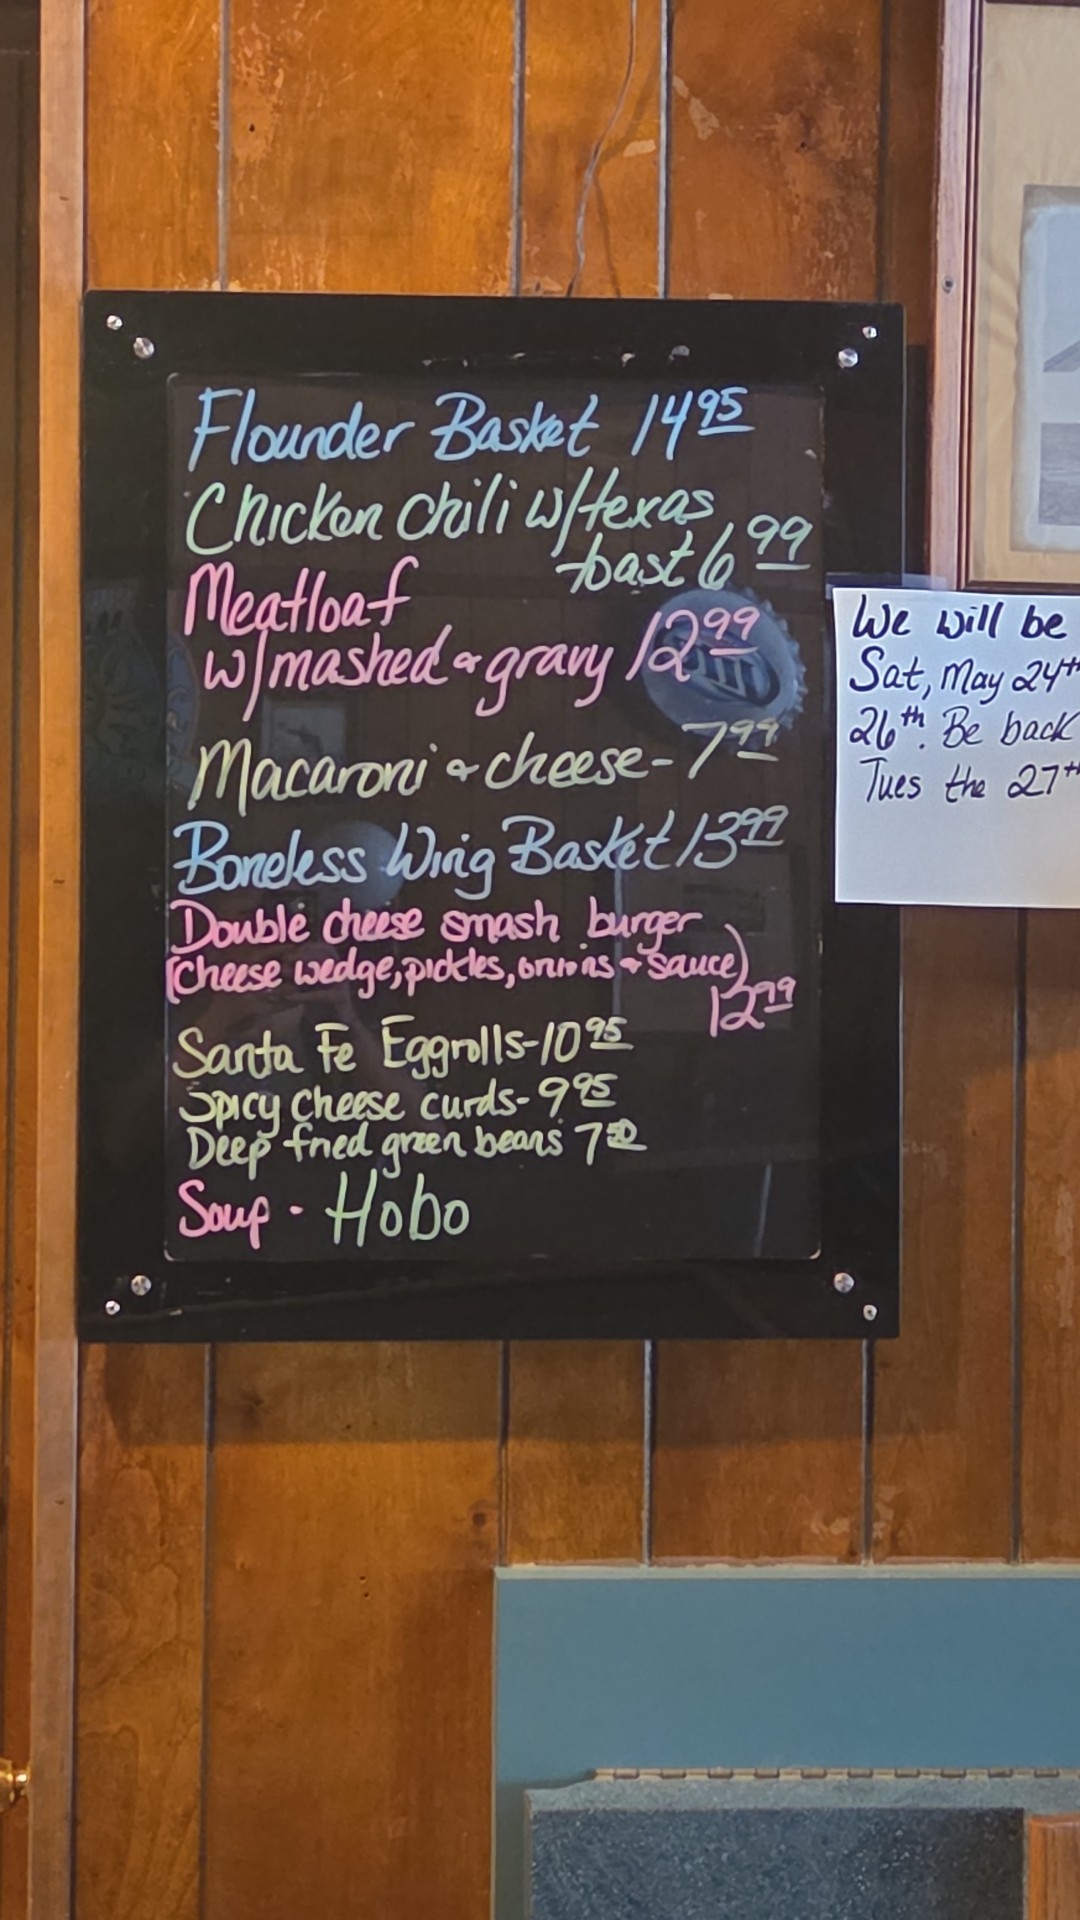 Flounder Basket 14 95
Chicken chili w/texas
toast 6 99
Meatloaf
w/mashed & gravy 12 99
Macaroni & cheese - 7 99
Boneless Wing Basket 13 99
Double cheese smash burger
(cheese wedge, pickles, onions & sauce)
12 99
Santa Fe Eggrolls - 10 95
Spicy Cheese curds - 9 95
Deep fried green beans 7 50
Soup - Hobo
We will be
Sat, May 24th
26th. Be back
Tues the 27th